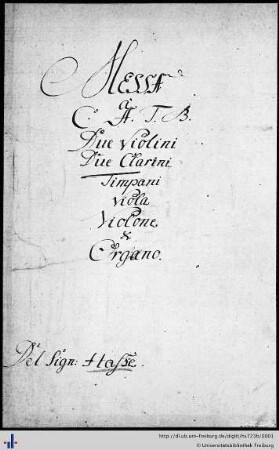 MESSA
à
C. A. T. B.
Due Violini
Due Clarini
Timpani
Viola
Violone
&
Organo.
Del Sign: Hasse.
http://dl.ub.uni-freiburg.de/diglit/hs723b/0001
© Universitätsbibliothek Freiburg